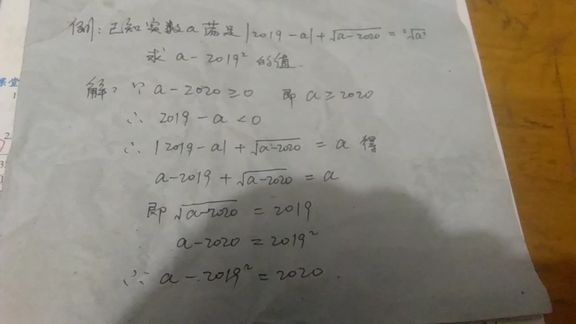 例:已知实数a满足|2019-a|+√(a-2020)=³√a³
求 a-2019² 的值.
解:∵ a-2020≥0 即 a≥2020
∴ 2019-a<0
∴ |2019-a|+√(a-2020)=a 得
a-2019+√(a-2020)=a
即 √(a-2020)=2019
a-2020=2019²
∴ a-2019²=2020.